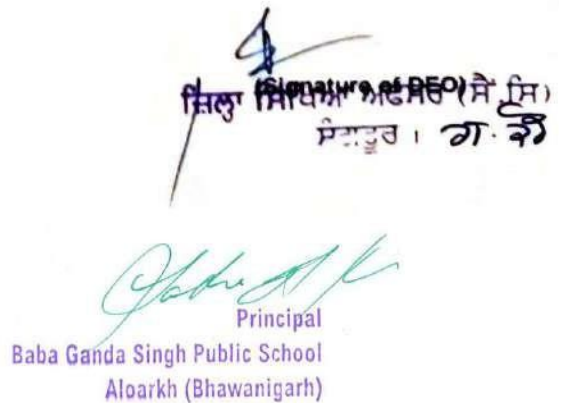 (Signature of DEO)
ਜ਼ਿਲ੍ਹਾ ਸਿੱਖਿਆ ਅਫਸਰ (ਸੈ. ਸਿ)
ਸੰਗਰੂਰ ।
Principal
Baba Ganda Singh Public School
Aloarkh (Bhawanigarh)